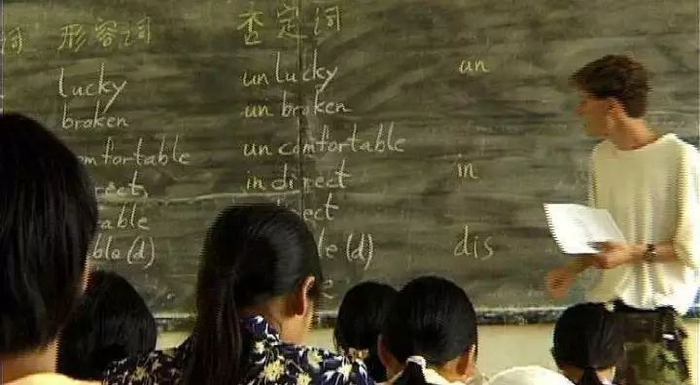 词 形容词 查定词
lucky unlucky un
broken unbroken
omfortable uncomfortable
rect, indirect in
able ect
ble(d) le(d) dis